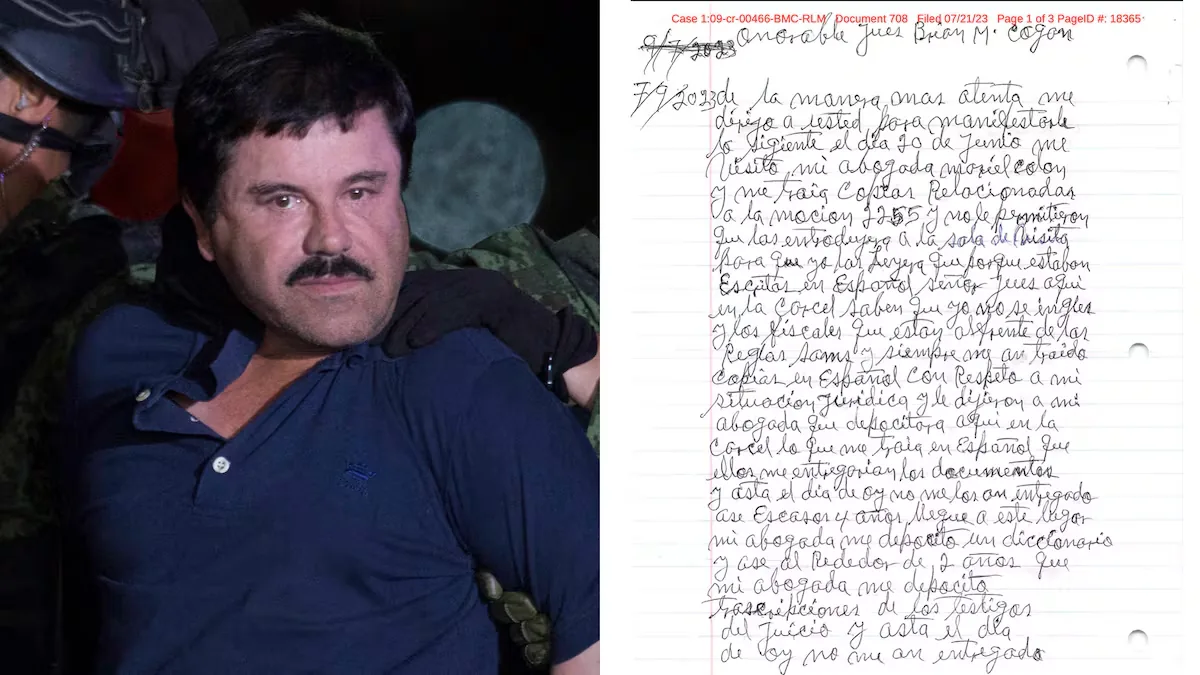 Case 1:09-cr-00466-BMC-RLM Document 708 Filed 07/21/23 Page 1 of 3 PageID #: 18365
9/7/2023 onorable Jues Brian M. Cogan
7/9/2023 de la manera mas atenta me
dirijo a usted para manifestarle
lo sigiente el dia 20 de Junio me
visito mi abogada mariel colon
y me traia copias Relacionadas
a la mocion 2255 y no le permitieron
que las entrodujera a la sala de Visita
para que yo las Leyera que porque estaban
Escritas en Español señor Jues aqui
en la Carcel saben que yo no se ingles
y los fiscales que estan al frente de las
Reglas sams y siempre me an traido
copias en Español con Respeto a mi
situacion Juridica y le dijeron a mi
abogada que depocitara aqui en la
Carcel lo que me traia en Español que
ellos me entregarian los documentos
y asta el dia de oy no me los an entregado
ase Escasos 4 años llegue a este lugar
mi abogada me depocito un diccionario
y ase al Rededor de 2 años que
mi abogada me depocito
trascripciones de los testigos
del Juicio y asta el dia
de oy no me an entregado